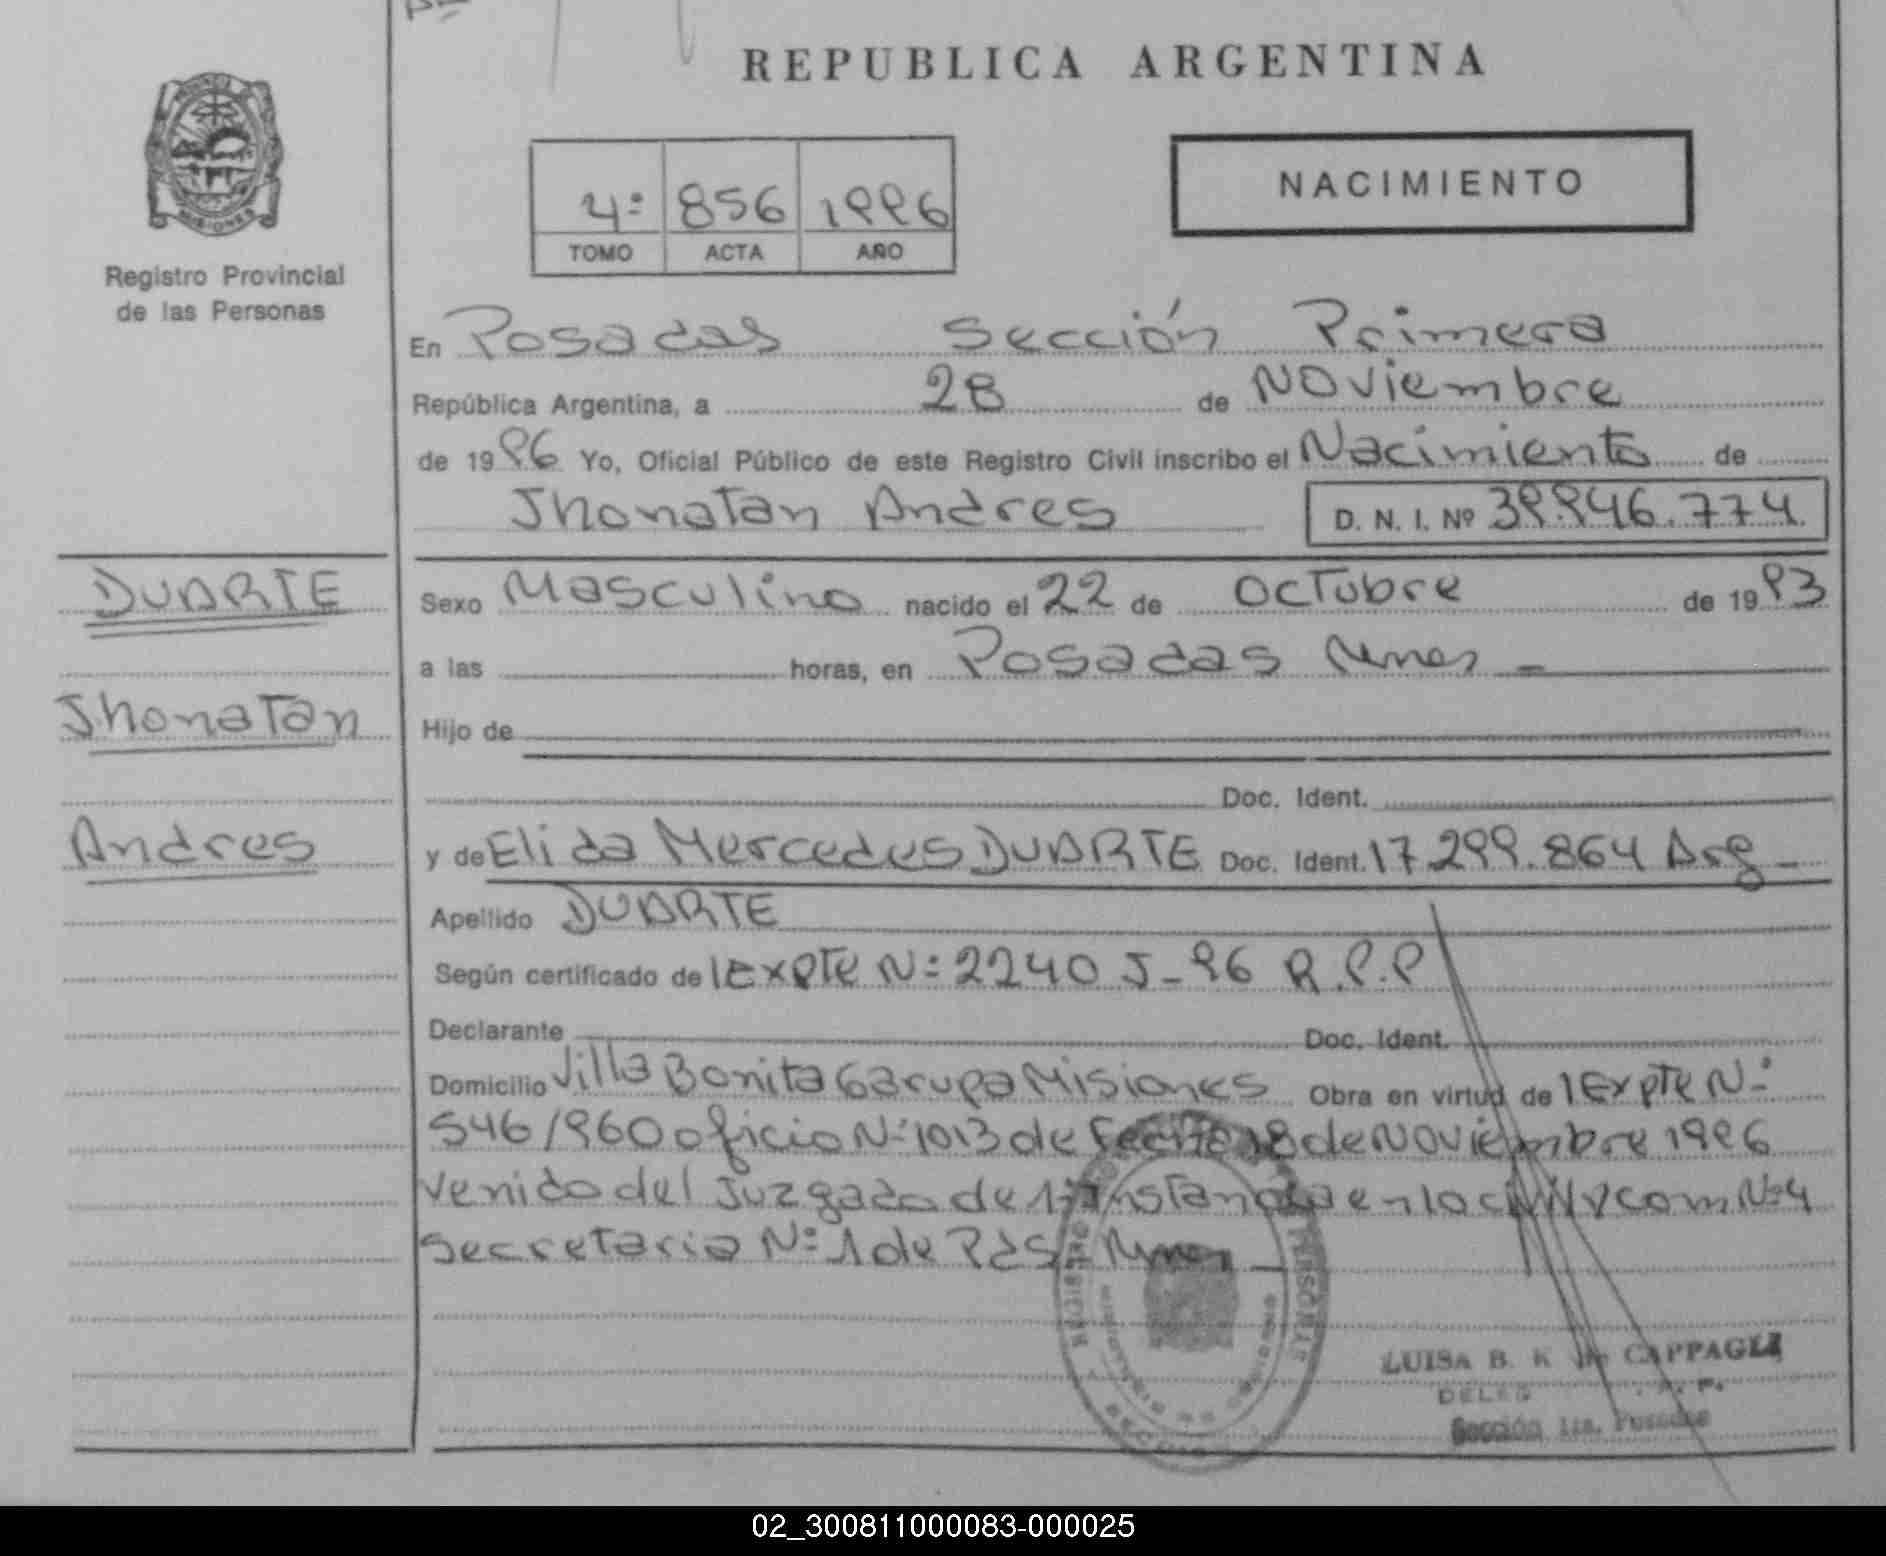 REPUBLICA ARGENTINA
NACIMIENTO
4º 856 1996
TOMO ACTA AÑO
MISIONES
Registro Provincial
de las Personas
En Posadas Sección Primera
República Argentina, a 28 de Noviembre
de 1996 Yo, Oficial Público de este Registro Civil inscribo el Nacimiento de
Jhonatan Andres D. N. I. Nº 39.946.774.
DUARTE
Jhonatan
Andres
Sexo Masculino nacido el 22 de Octubre de 1993
a las horas, en Posadas Mnes
Hijo de
Doc. Ident.
y de Elida Mercedes DUARTE Doc. Ident. 17.299.864 Arg
Apellido DUARTE
Según certificado de Expte Nº 2240 J-96 R.P.P
Declarante Doc. Ident.
Domicilio Villa Bonita Garupa Misiones Obra en virtud de Expte Nº
546/960 oficio Nº 1013 de fecha 18 de Noviembre 1996
venido del Juzgado de 1º instancia en lo civil y com Nº 4
Secretaria Nº 1 de Pdas Mnes
LUISA B. K de CAPPAGLI
DELEG
Sección 1ra. Posadas
02_300811000083-000025